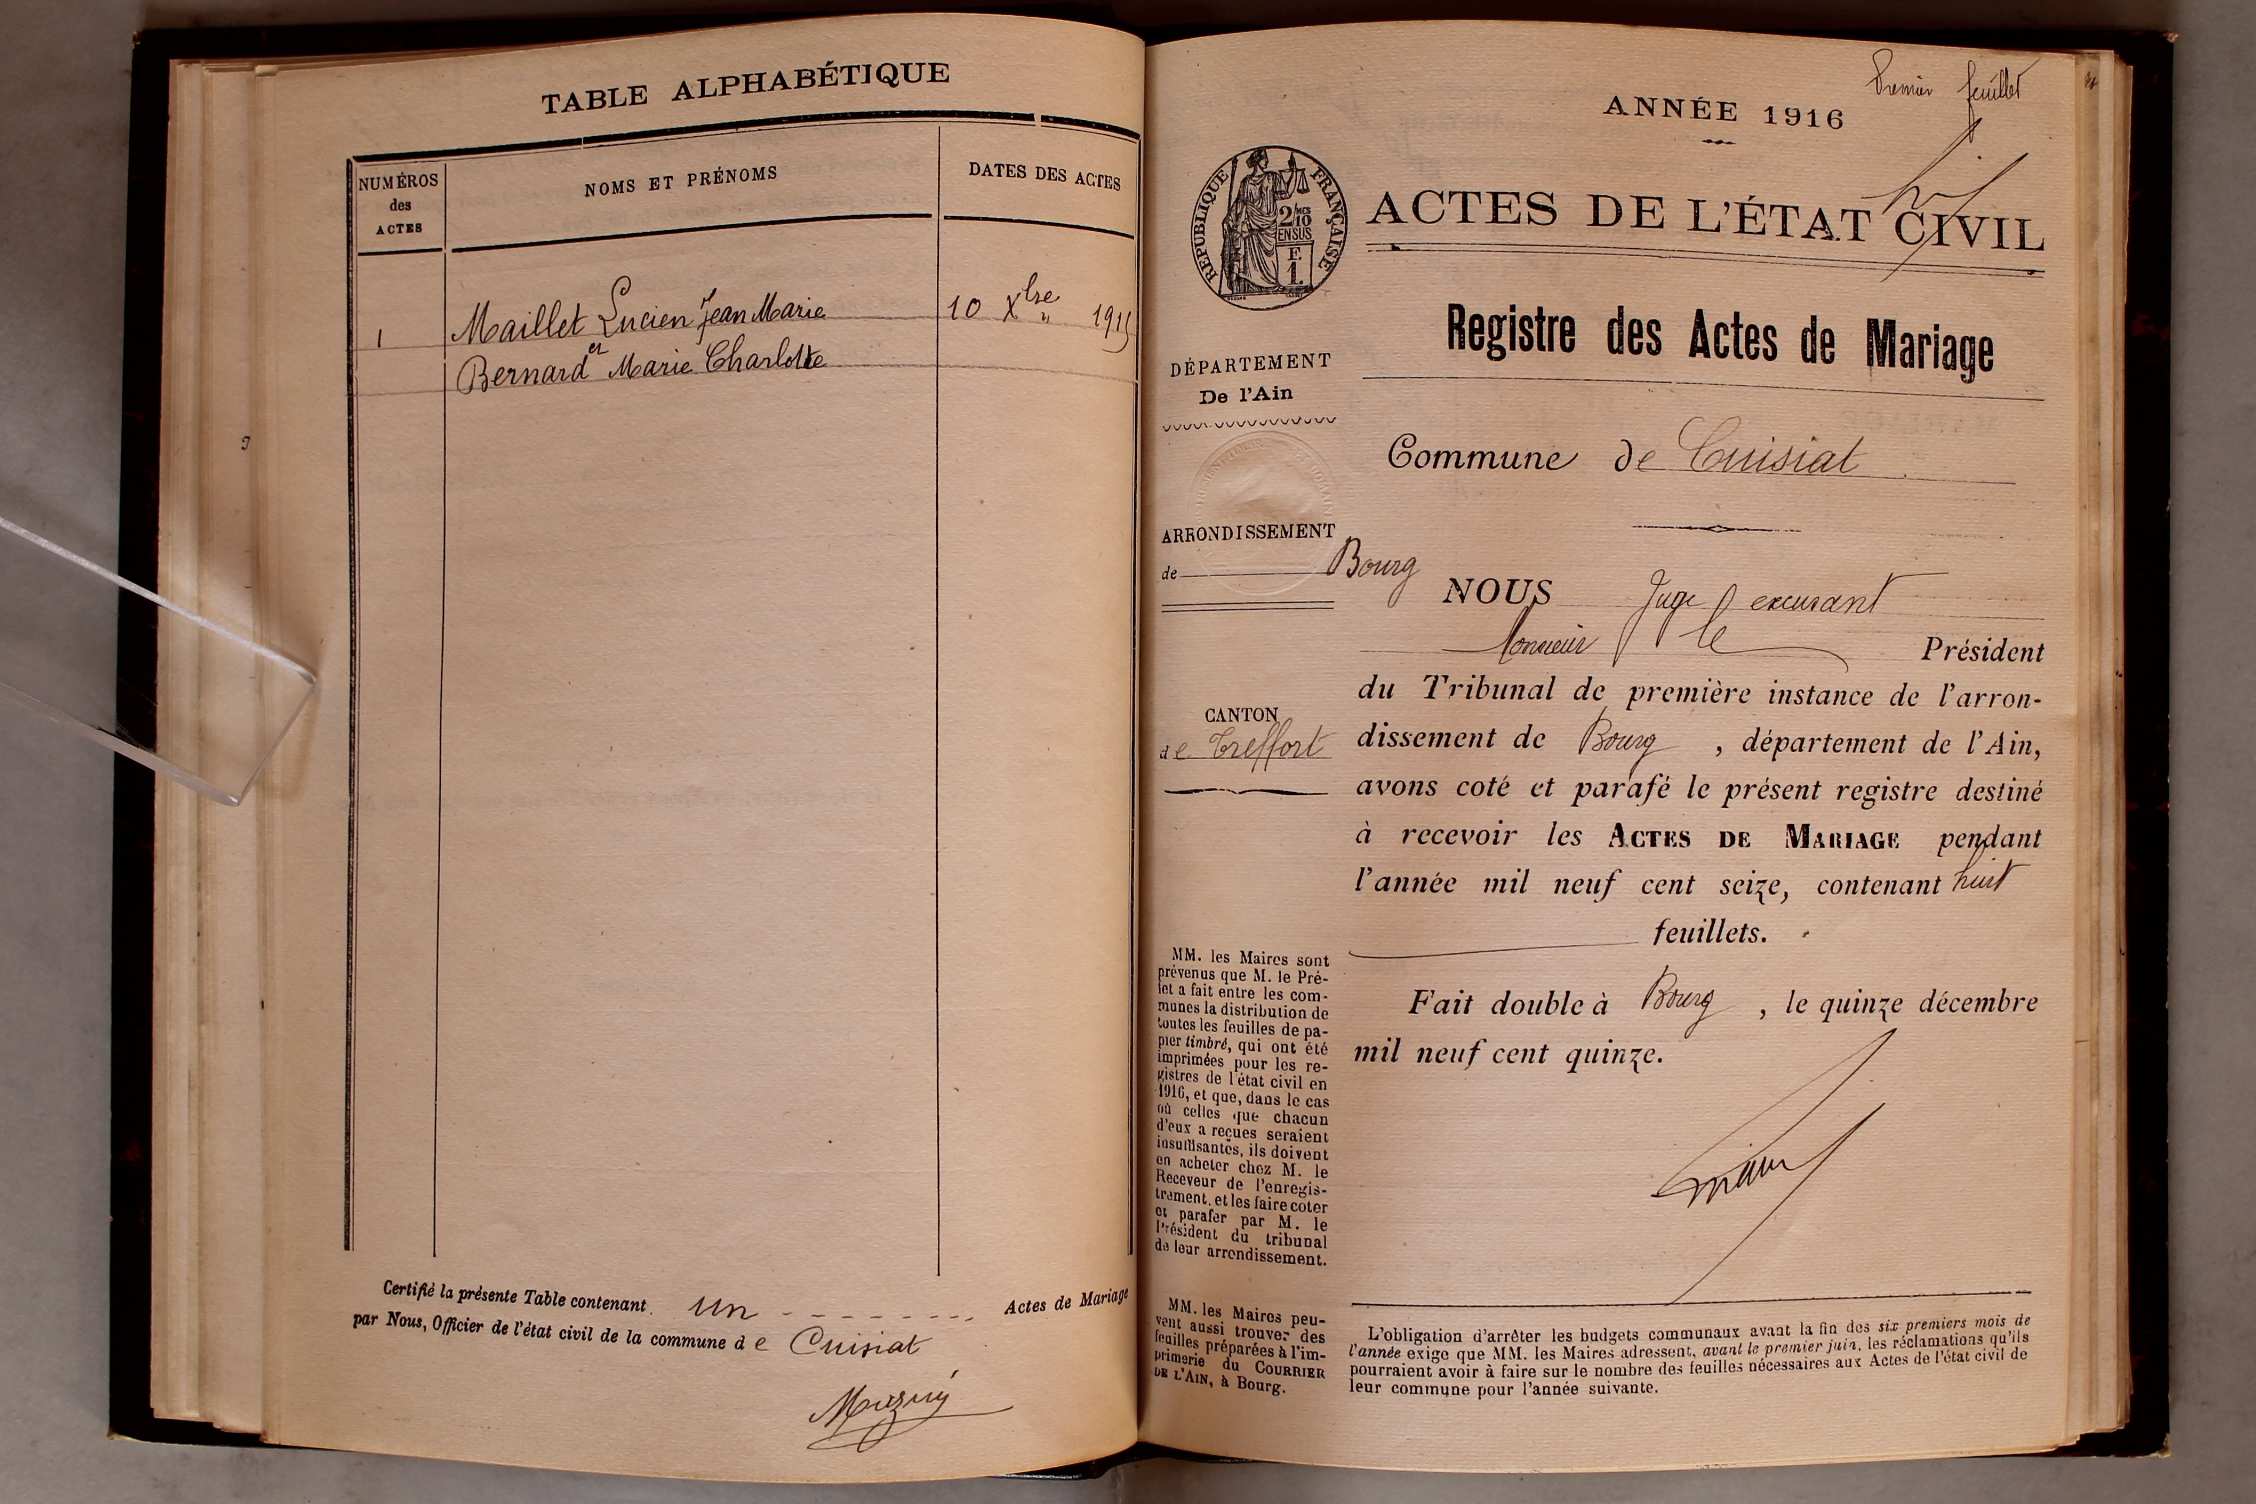 TABLE ALPHABÉTIQUE
NUMÉROS
des
ACTES
NOMS ET PRÉNOMS
DATES DES ACTES
1 Maillet Lucien Jean Marie 10 Xbre " 1915
et
Bernard Marie Charlotte
Certifié la présente Table contenant un Actes de Mariage
par Nous, Officier de l'état civil de la commune de Cuisiat
Premier feuillet
ANNÉE 1916
RÉPUBLIQUE FRANÇAISE
2/10mes
EN SUS
F.
1.
ACTES DE L'ÉTAT CIVIL
Registre des Actes de Mariage
DÉPARTEMENT
De l'Ain
Commune de Cuisiat
ARRONDISSEMENT
de Bourg
CANTON
de Treffort
NOUS Juge excusant
Monsieur le Président
du Tribunal de première instance de l'arron-
dissement de Bourg, département de l'Ain,
avons coté et parafé le présent registre destiné
à recevoir les ACTES DE MARIAGE pendant
l'année mil neuf cent seize, contenant huit
feuillets.
Fait double à Bourg, le quinze décembre
mil neuf cent quinze.
MM. les Maires sont
prévenus que M. le Pré-
fet a fait entre les com-
munes la distribution de
toutes les feuilles de pa-
pier timbré, qui ont été
imprimées pour les re-
gistres de l'état civil en
1916, et que, dans le cas
où celles que chacun
d'eux a reçues seraient
insuffisantes, ils doivent
en acheter chez M. le
Receveur de l'enregis-
trement, et les faire coter
et parafer par M. le
Président du tribunal
de leur arrondissement.
MM. les Maires peu-
vent aussi trouver des
feuilles préparées à l'im-
primerie du COURRIER
DE L'AIN, à Bourg.
L'obligation d'arrêter les budgets communaux avant la fin des six premiers mois de
l'année exige que MM. les Maires adressent, avant le premier juin, les réclamations qu'ils
pourraient avoir à faire sur le nombre des feuilles nécessaires aux Actes de l'état civil de
leur commune pour l'année suivante.